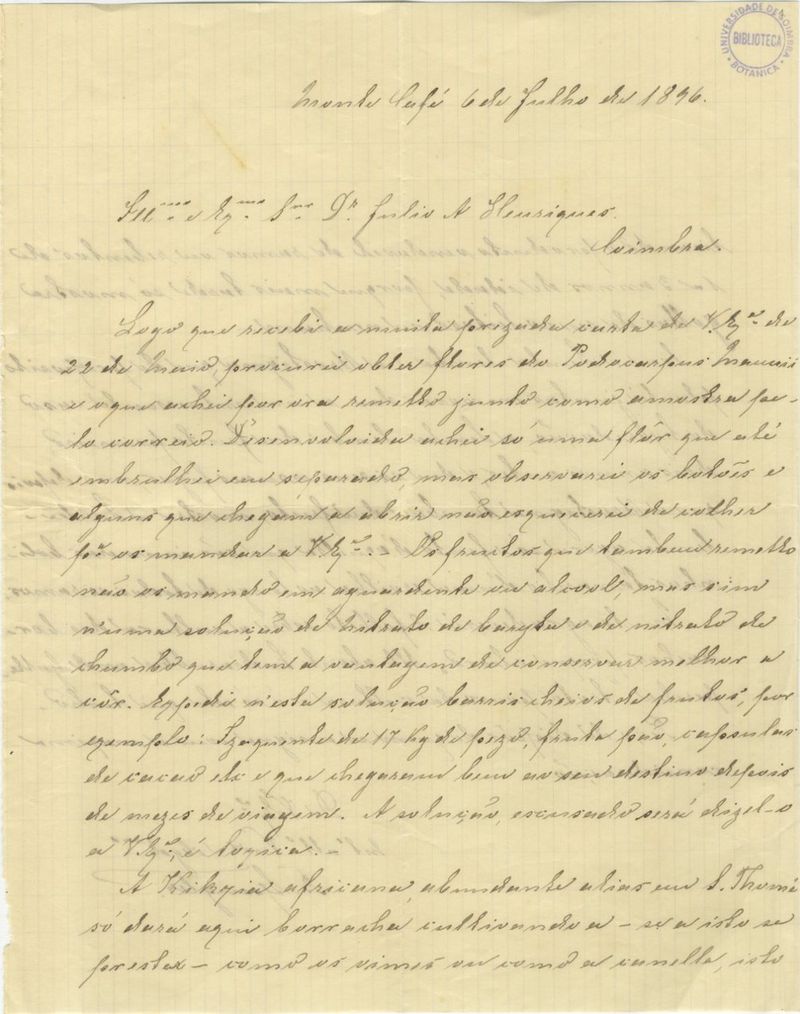 UNIVERSIDADE DE COIMBRA
BIBLIOTECA
BOTANICA
Monte Café 6 de Julho de 1896.
Illmo e Exmo Snr Dr Julio A Henriques.
Coimbra.
Logo que recebi a muito prezada carta de V. Exª de
22 de Maio procurei obter flores do Podocarpus Mannii
e o que achei por ora remetto junto como amostra pe-
lo correio. Desenvolvida achei só uma flôr que até
embrulhei em separado, mas observarei os botões e
alguns que chegám a abrir não esquecerei de colher
pª os mandar a V. Exª. – Os fructos que tambem remetto
não os mando em aguardente ou alcool, mas sim
n'uma solução de nitrato de baryta e de nitrato de
chumbo que tem a vantagem de conservar melhor a
côr. Expedi n'esta solução barris cheios de frutos, por
exemplo: Izaquente de 17 kg de pezo, fruta pão, capsulas
de cacao etc e que chegaram bem ao seu destino depois
de mezes de viagem. A solução, escusado será dizel-o
a V. Exª, é toxica. –
A Kikxia africana, abundante alias em S. Thomé
só dará aqui borracha cultivando a – se a isto se
prestar – como os vimes ou como a canella, isto